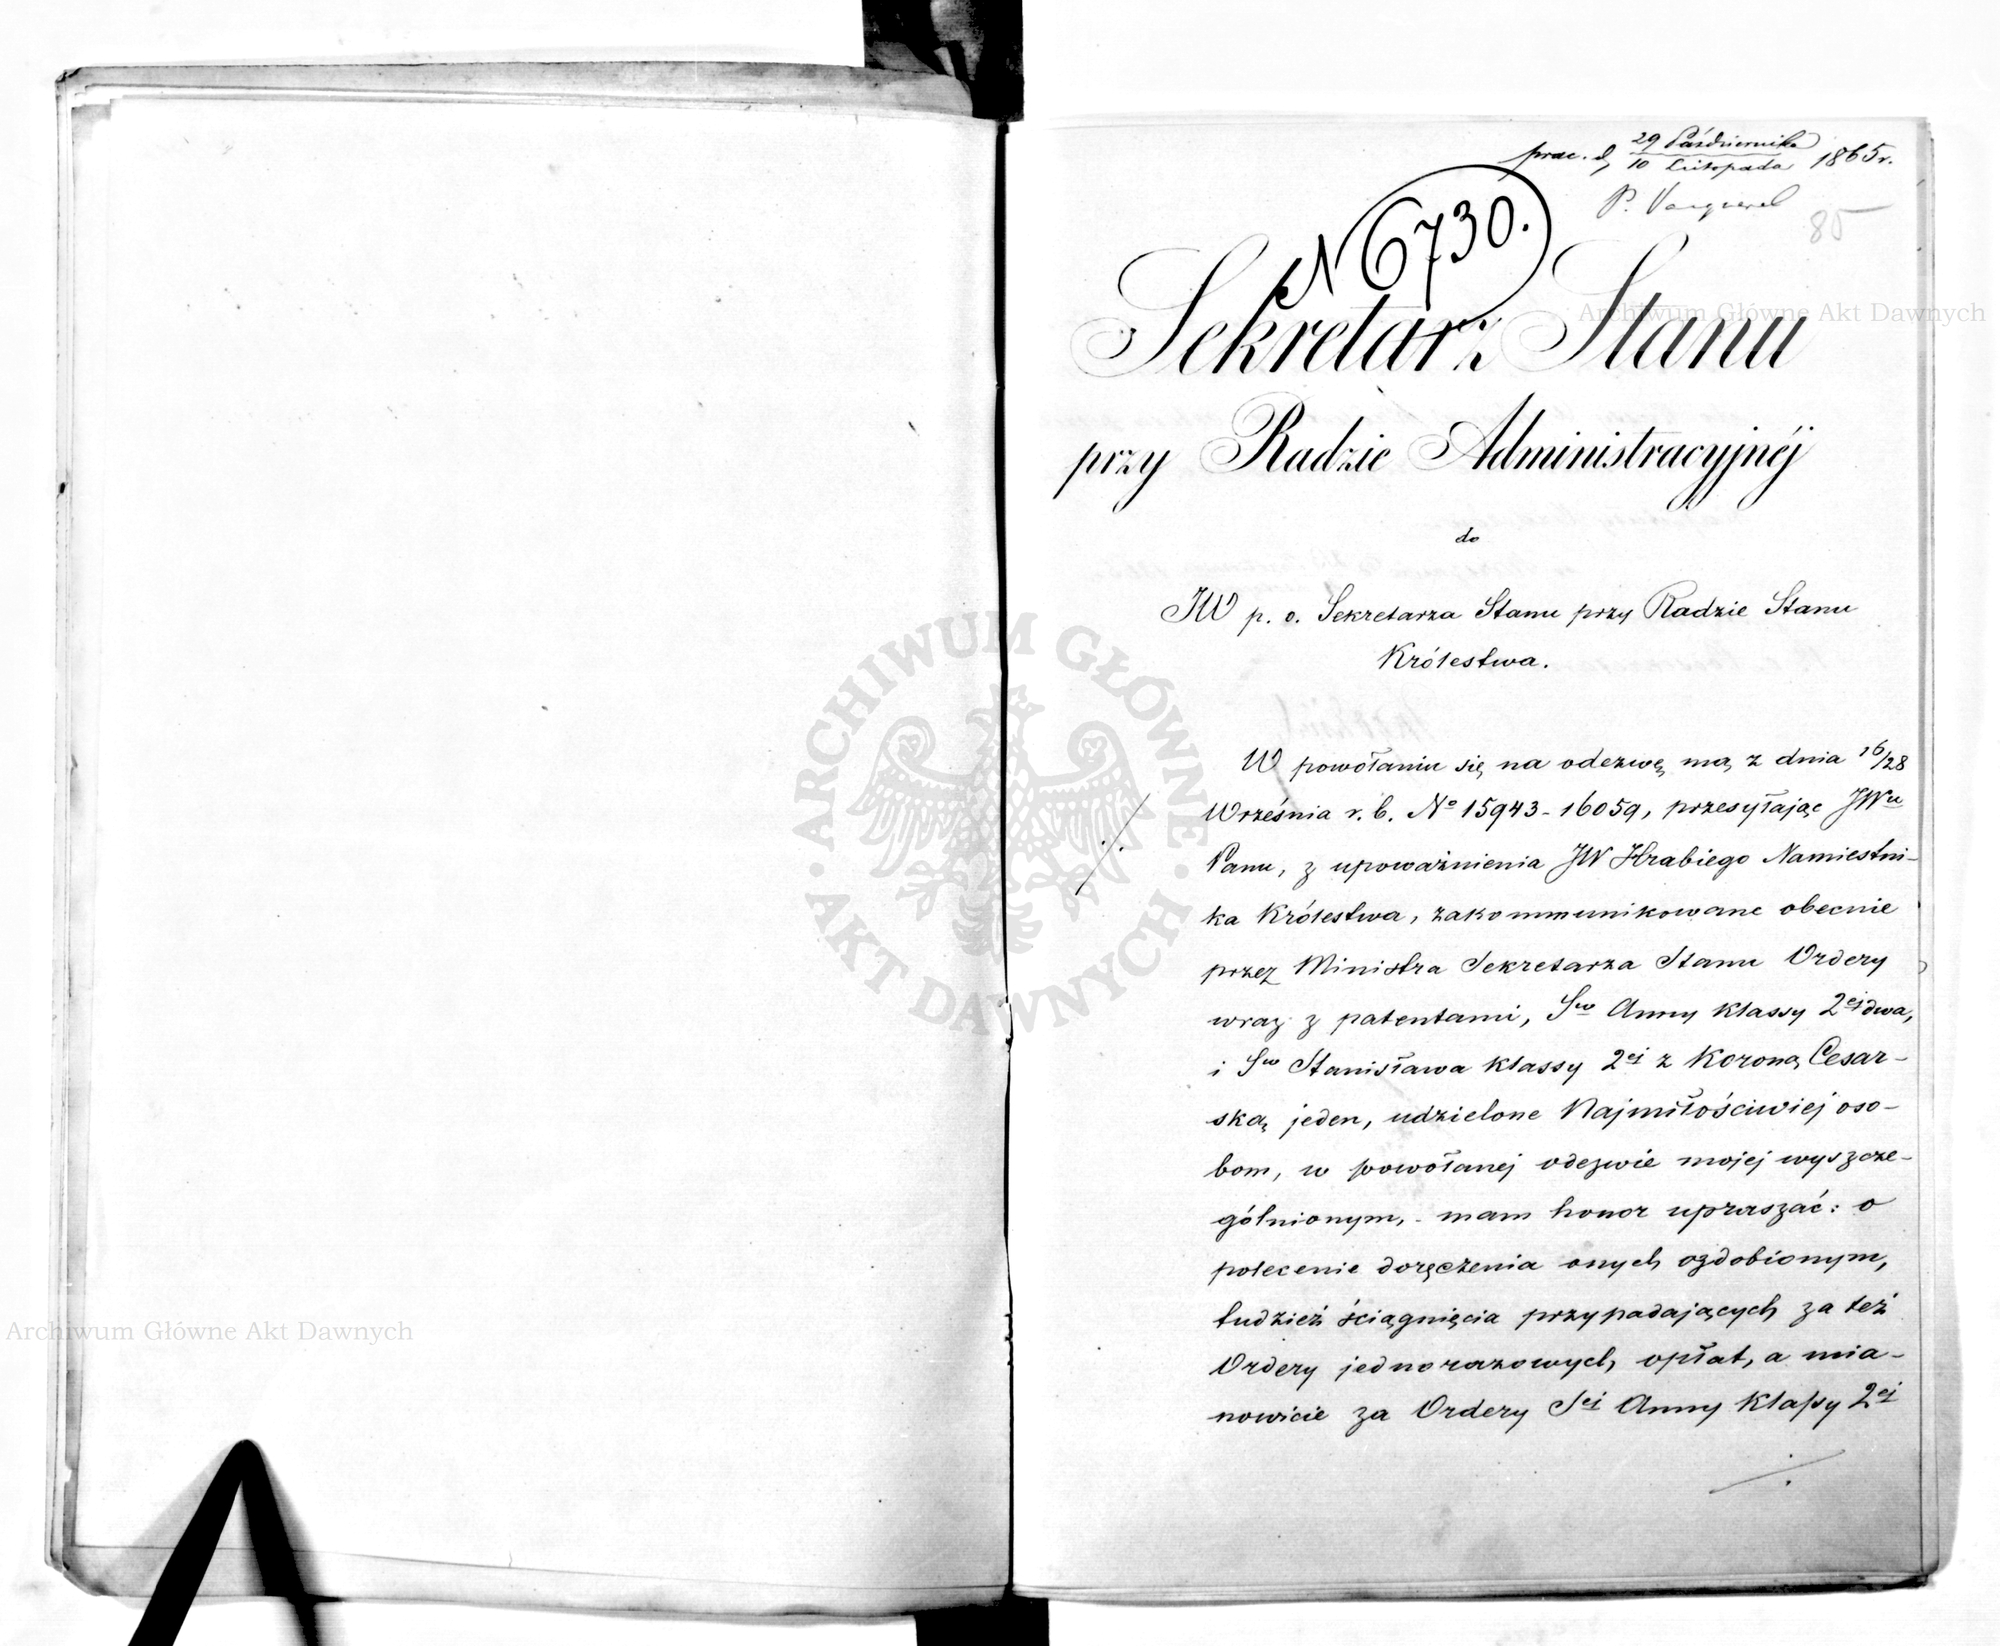 prae. d. 29 Października / 10 Listopada 1865 r.
P. Vanquerel
85
N 6730.
Sekretarz Stanu
przy Radzie Administracyjnéj
do
JW p. o. Sekretarza Stanu przy Radzie Stanu
Królestwa.
W powołaniu się na odezwę mą z dnia 16/28
Września r. b. No 15943-16059, przesyłając JWu
Panu, z upoważnienia JW Hrabiego Namiestni-
ka Królestwa, zakommunikowane obecnie
przez Ministra Sekretarza Stanu Ordery
wraz z patentami, Sw Anny klassy 2ej dwa,
i Sw Stanisława klassy 2ej z Koroną Cesar-
ską jeden, udzielone Najmiłościwiej oso-
bom, w powołanej odezwie mojej wyszcze-
gólnionym, - mam honor upraszać: o
polecenie doręczenia onych ozdobionym,
tudzież ściągnięcia przypadających za też
Ordery jednorazowych opłat, a mia-
nowicie za Ordery Sej Anny klassy 2ej
Archiwum Główne Akt Dawnych
ARCHIWUM GŁÓWNE AKT DAWNYCH
Archiwum Główne Akt Dawnych